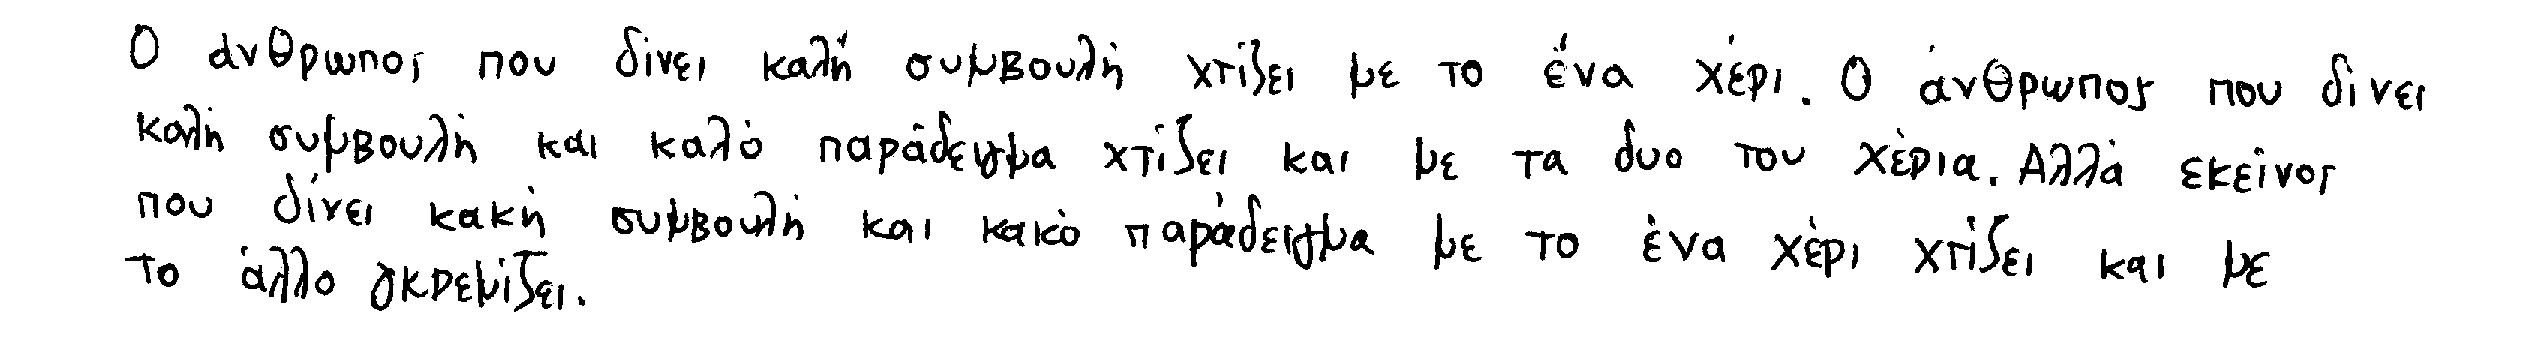 Ο άνθρωπος που δίνει καλή συμβουλή χτίζει με το ένα χέρι. Ο άνθρωπος που δίνει
καλή συμβουλή και καλό παράδειγμα χτίζει και με τα δυο του χέρια. Αλλά εκείνος
που δίνει κακή συμβουλή και κακό παράδειγμα με το ένα χέρι χτίζει και με
το άλλο γκρεμίζει.